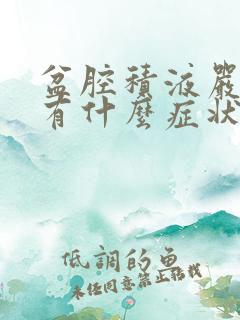 盆腔積液嚴
有什麼症狀
低調的魚
未任同意禁止拷找